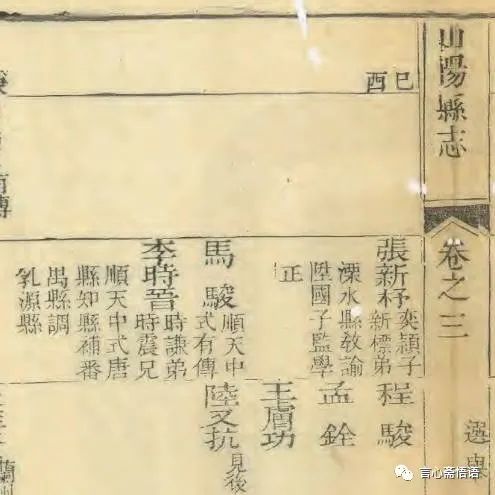 山陽縣志
卷之三
選舉
己酉
張新杼
奕頴子
新標弟
溧水縣教諭
陞國子監學
正
馬駿
順天中
式有傳
李時晉
時謙弟
時震兄
順天中式唐
縣知縣補番
禺縣調
乳源縣
程駿
孟銓
王膚功
陸抗
見後
傳
蘭
言心斋悟语